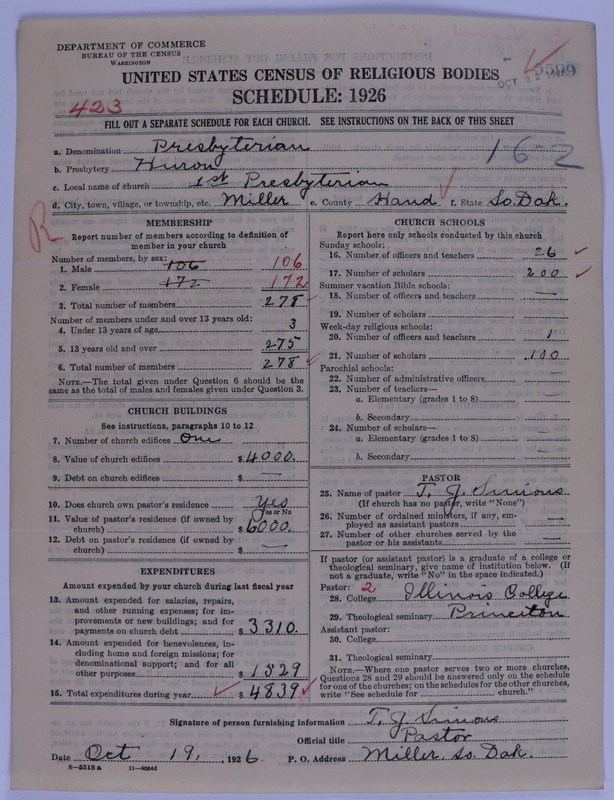 DEPARTMENT OF COMMERCE
BUREAU OF THE CENSUS
WASHINGTON
UNITED STATES CENSUS OF RELIGIOUS BODIES
OCT 22
5599
423
SCHEDULE: 1926
FILL OUT A SEPARATE SCHEDULE FOR EACH CHURCH. SEE INSTRUCTIONS ON THE BACK OF THIS SHEET
a. Denomination Presbyterian
16-2
b. Presbytery Huron
c. Local name of church 1st Presbyterian
d. City, town, village, or township, etc. Miller e. County Hand f. State So. Dak.
R
MEMBERSHIP
Report number of members according to definition of
member in your church
Number of members, by sex:
1. Male 106 106
2. Female 172 172
3. Total number of members 278
Number of members under and over 13 years old:
4. Under 13 years of age 3
5. 13 years old and over 275
6. Total number of members 278
NOTE.—The total given under Question 6 should be
same as the total of males and females given under Question 3.
CHURCH BUILDINGS
See instructions, paragraphs 10 to 12
7. Number of church edifices One
8. Value of church edifices $ 4000.
9. Debt on church edifices $ —
10. Does church own pastor's residence Yes
Yes or No
11. Value of pastor's residence (if owned by
church) $ 6000.
12. Debt on pastor's residence (if owned by
church) $ —
EXPENDITURES
Amount expended by your church during last fiscal year
13. Amount expended for salaries, repairs,
and other running expenses; for im-
provements or new buildings; and for
payments on church debt $ 3310.
14. Amount expended for benevolences, in-
cluding home and foreign missions; for
denominational support; and for all
other purposes $ 1529
15. Total expenditures during year $ 4839
CHURCH SCHOOLS
Report here only schools conducted by this church
Sunday schools:
16. Number of officers and teachers 26
17. Number of scholars 200
Summer vacation Bible schools:
18. Number of officers and teachers —
19. Number of scholars
Week-day religious schools:
20. Number of officers and teachers 1
21. Number of scholars 100
Parochial schools:
22. Number of administrative officers —
23. Number of teachers—
a. Elementary (grades 1 to 8) —
b. Secondary
24. Number of scholars—
a. Elementary (grades 1 to 8) —
b. Secondary —
PASTOR
25. Name of pastor T. J. Simons
(If church has no pastor, write "None")
26. Number of ordained ministers, if any, em-
ployed as assistant pastors —
27. Number of other churches served by the
pastor or his assistants —
If pastor (or assistant pastor) is a graduate of a college or
theological seminary, give name of institution below. (If
not a graduate, write "No" in the space indicated.)
Pastor: 2
28. College Illinois College
29. Theological seminary Princeton
Assistant pastor:
30. College
31. Theological seminary
NOTE.—Where one pastor serves two or more churches,
Questions 28 and 29 should be answered only on the schedule
for one of the churches; on the schedules for the other churches,
write "See schedule for church."
Signature of person furnishing information T. J. Simons
Official title Pastor
Date Oct 19, 1926 P. O. Address Miller, So. Dak.
8—5518 a